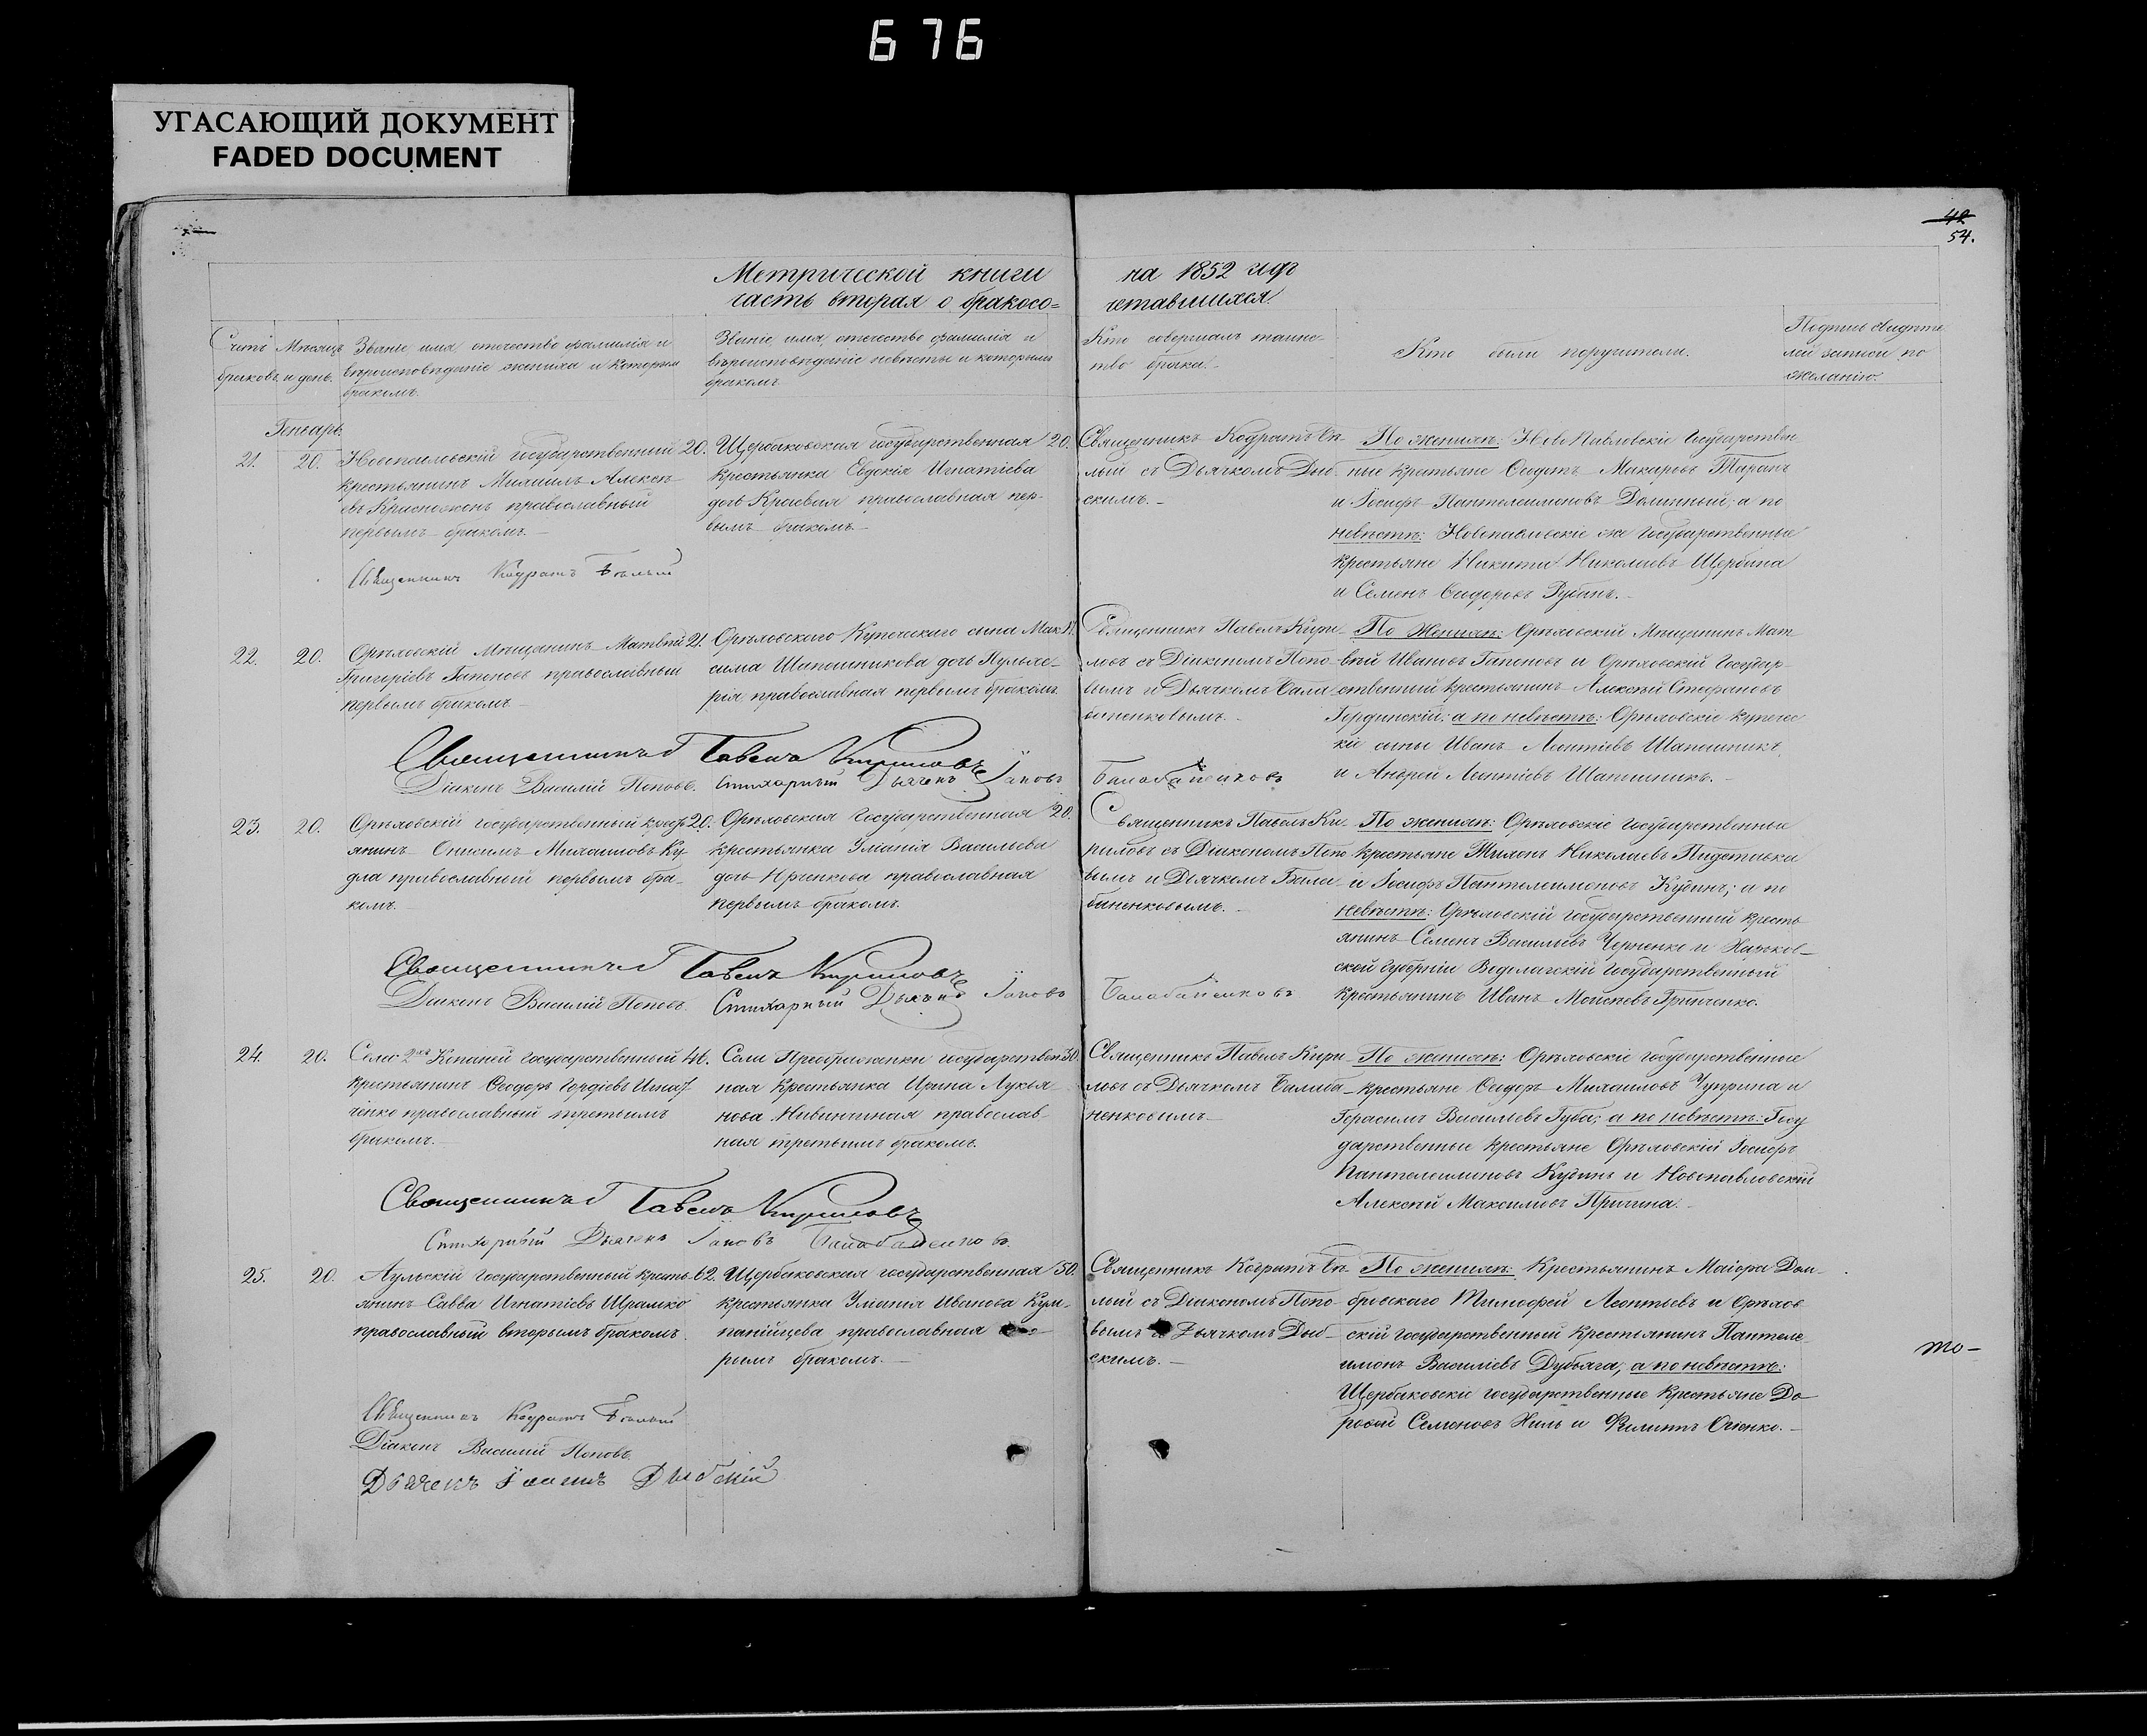 676
УГАСАЮЩИЙ ДОКУМЕНТ
FADED DOCUMENT
42
54.
Метрической книги
часть вторая о бракосо=
на 1852 годъ
четавшихся.
Счетъ
браковъ.
Мѣсяцъ
и день.
Званіе имя, отечество фамилія и
вѣроисповѣданіе жениха и которым
бракомъ.
Званіе, имя, отечество фамилія и
вѣроисповѣданіе невѣсты и которымъ
бракомъ
Кто совершалъ таинс-
тво брака.
Кто были поручители.
Подпись свидѣте
лей записи по
желанію.
Генварь.
21.
20.
Новопавловскій государственный 20.
крестьянинъ Михаилъ Алексѣ
евъ православный
первымъ бракомъ.
Щербаковская государственная 20.
крестьянка Евдокія Игнатіева
дочь Краевая православная пер-
вымъ бракомъ.
Священникъ Кодратъ Бѣ-
лый съ Дьячкомъ Дыб-
скимъ.
По женихѣ: Ново Павловскіе Государствен
ные крестьяне Сидоръ Макаровъ Таранъ
и Іосифъ Пантелеимоновъ Долинный; а по
невѣстѣ: Новопавловскіе же Государственные
крестьяне Никита Николаевъ Щербина
и Семенъ Сидоровъ Рубанъ.
Священникъ Кодратъ Бѣлый
22.
20.
Орѣховскій Мѣщанинъ Матвѣй 21.
Григоріевъ Гапоновъ православный
первымъ бракомъ
Орѣховскаго Купеческаго сына Мак
сима Шапошникова дочь Пульхе-
рія, православная первымъ бракомъ.
Священникъ Павелъ Кири-
ловъ съ Діакономъ Попо
вымъ и Дьячкомъ Бала
баненковымъ.
По Женихѣ: Орѣховскій Мѣщанинъ Мат
вѣй Ивановъ Гапоновъ и Орѣховскій Государ-
ственный крестьянинъ Алексѣй Стефановъ
Гординскій; а по невѣстѣ: Орѣховскіе купечес
кіе сыны Иванъ Леонтіевъ Шапошникъ
и Андрей Леонтіевъ Шапошникъ.
Священникъ Павелъ Кириловъ
Діаконъ Василій Поповъ. Стихарный Дьячекъ Іаковъ Балабаненковъ
23.
20.
Орѣховскій государственный крест 20.
янинъ Онисимъ Михаиловъ Ку
дла православный первымъ бра-
комъ.
Орѣховская Государственная 20.
крестьянка Уліанія Васильева
дочь православная
первымъ бракомъ.
Священникъ Павелъ Ки-
риловъ съ Діакономъ Попо
вымъ и Дьячкомъ Бала-
баненковымъ.
По женихѣ: Орѣховскіе Государственные
крестьяне Тихонъ Николаевъ Пидставка
и Іосифъ Пантелеимоновъ Кудинъ; а по
невѣстѣ: Орѣховскій Государственный кресть
янинъ Семенъ Васильевъ Черненко и Харьков-
ской Губерніи Водолагскій Государственный
крестьянинъ Иванъ Моисеевъ Гринченко.
Священникъ Павелъ Кириловъ
Діаконъ Василій Поповъ. Стихарный Дьячекъ Іаковъ Балабаненковъ
24.
20.
Села 2хъ Копаней государственный 46.
крестьянинъ Ѳеодоръ Гордіевъ Игнат
ченко православный третьимъ
бракомъ.
Села Преображенки государствен 30.
ная крестьянка Ирина Лукья
нова православ-
ная третьимъ бракомъ.
Священникъ Павелъ Кири
ловъ съ Дьячкомъ Балаба-
ненковымъ
По женихѣ: Орѣховскіе Государственные
крестьяне Ѳеодоръ Михаиловъ Чуприна и
Герасимъ Васильевъ Губа; а по невѣстѣ: Госу
дарственные крестьяне Орѣховскій Іосифъ
Пантелеимоновъ Кудинъ и Новопавловскій
Алексѣй Максимовъ Причина.
Священникъ Павелъ Кириловъ
Стихарный Дьячекъ Іаковъ Балабаненковъ.
25.
20.
Аульскій Государственный кресть 62.
янинъ Савва Игнатіевъ Шрамко
православный вторымъ бракомъ
Щербаковская государственная 50.
крестьянка Уліанія Иванова Кум-
панійцева православная вто-
рымъ бракомъ.
Священникъ Кодратъ Бѣ-
лый съ Діакономъ Попо-
вымъ и Дьячкомъ Дыб-
скимъ.
По женихѣ: Крестьянинъ Маіора Дом-
бровскаго Тимофей Леонтьевъ и Орѣхов
скій государственный крестьянинъ Пантеле
имонъ Василіевъ Дубяга; а по невѣстѣ:
Щербаковскіе государственные крестьяне До
рофей Семеновъ Хиль и Филиппъ
то-
Священникъ Кодратъ Бѣлый
Діаконъ Василій Поповъ.
Дьячекъ Дыбскій